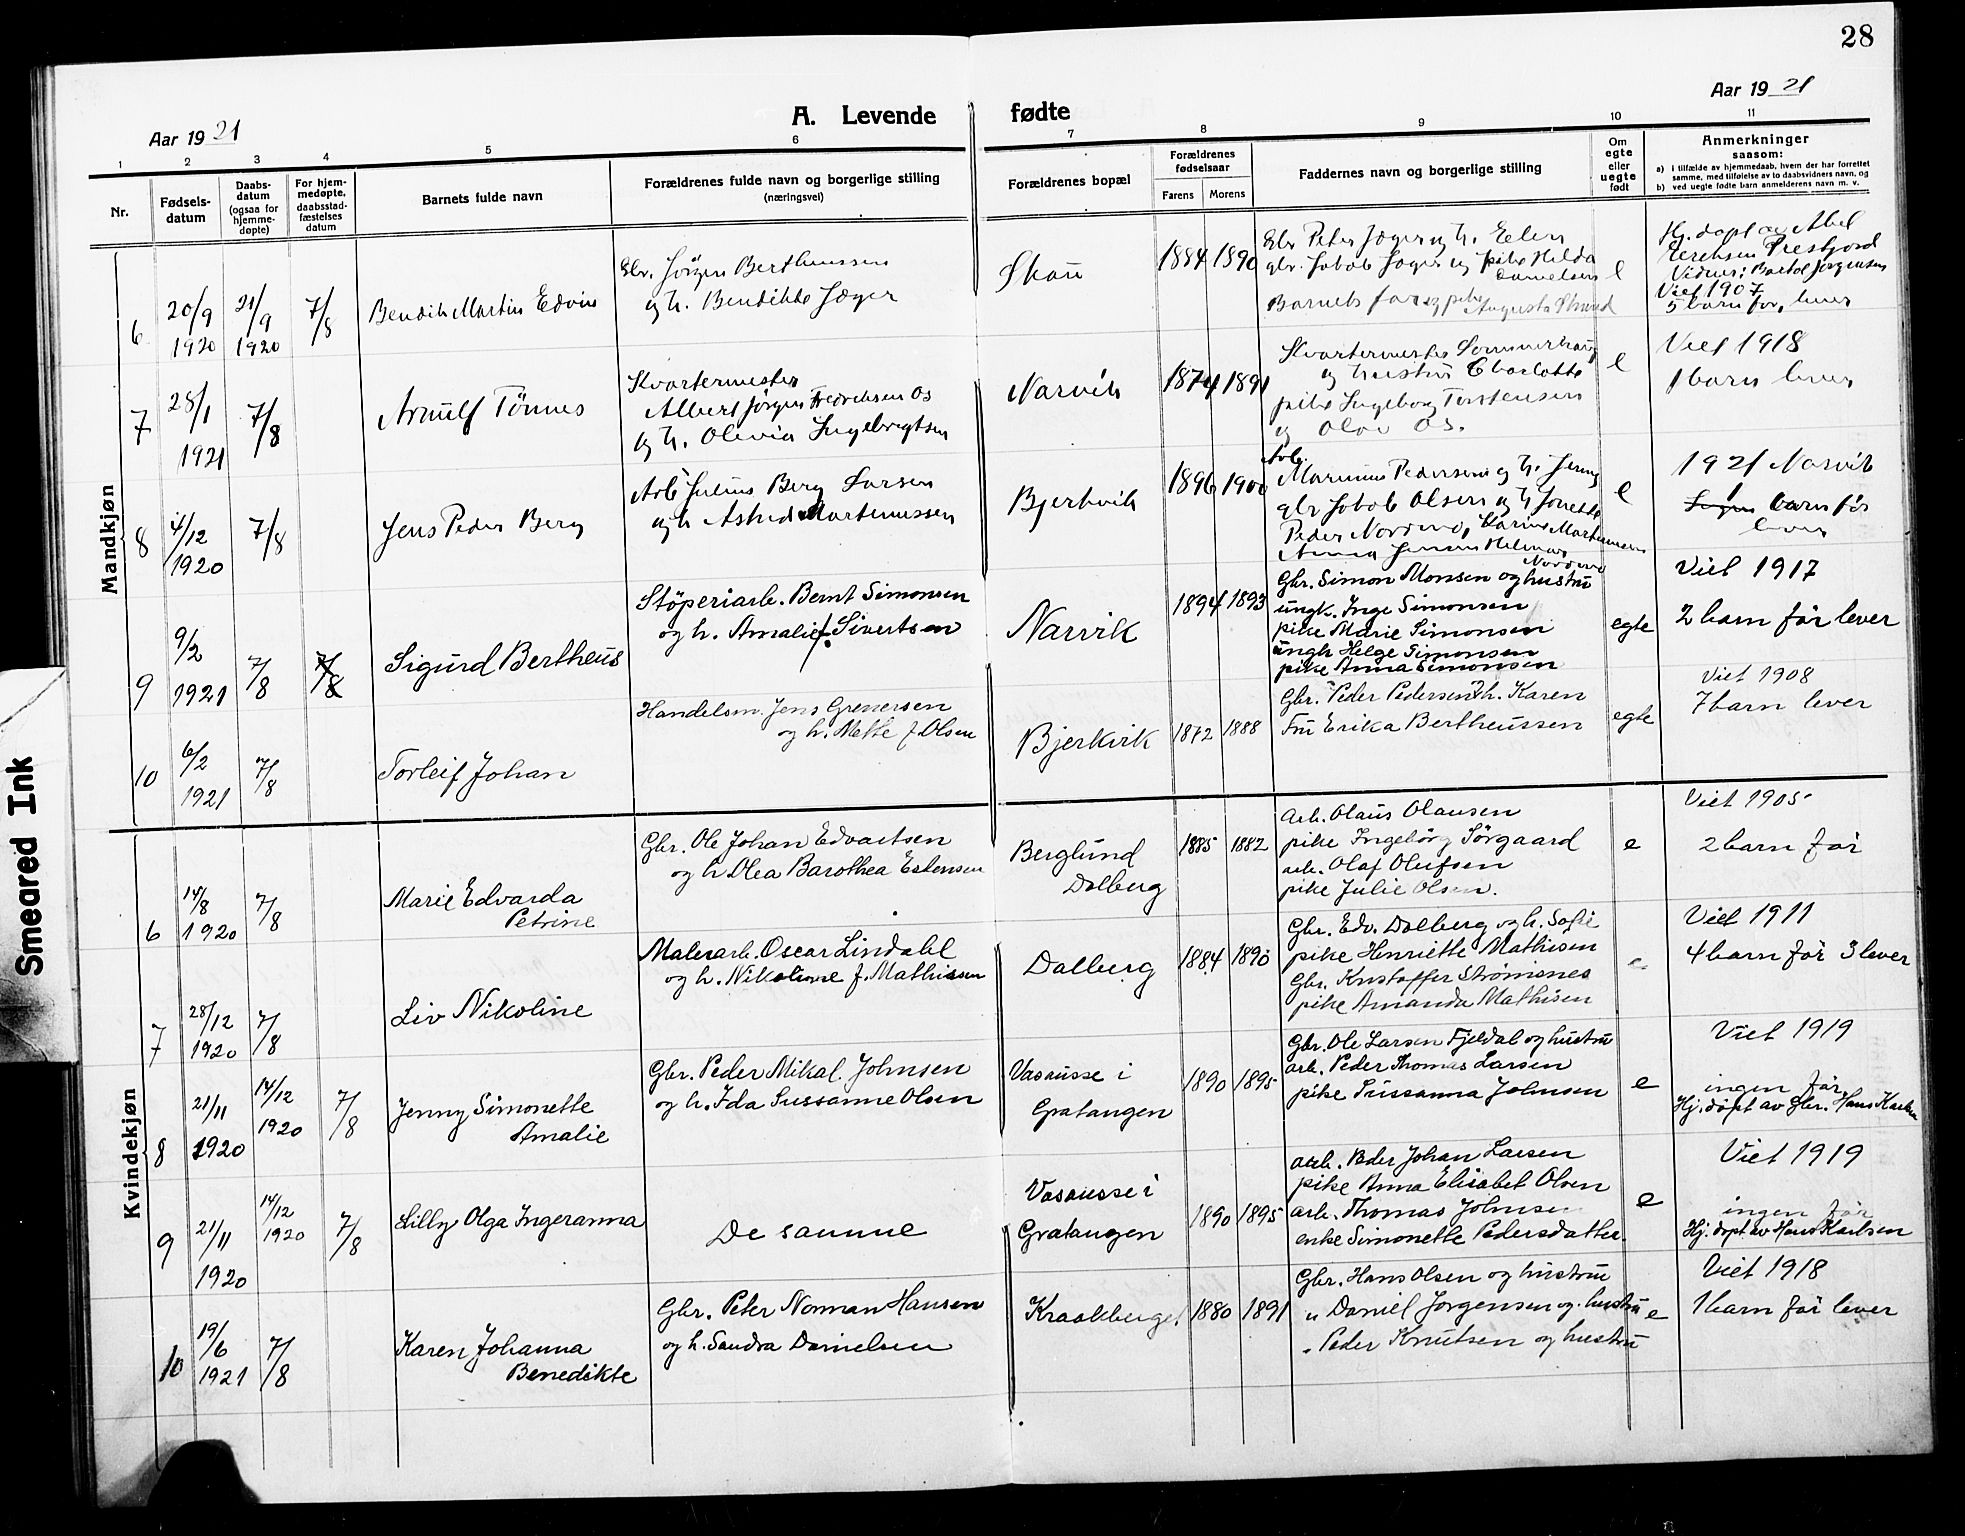 28
Aar 1921
A. Levende fødte
Aar 1921
1
2
3
4
5
6
7
8
9
10
11
Nr.
Fødsels-
datum
Daabs-
datum
(ogsaa for
hjemme-
døpte)
For hjem-
medøpte,
daabsstad-
fæstelses
datum
Barnets fulde navn
Forældrenes fulde navn og borgerlige stilling
(næringsvei)
Forældrenes bopæl
Forældrenes
fødselsaar
Farens
Morens
Faddernes navn og borgerlige stilling
Om
egte
eller
uegte
født
Anmerkninger
saasom:
a) i tilfælde av hjemmedaab, hvem der har forrettet
samme, med tilføielse av to daabsvidners navn, og
b) ved uegte fødte barn anmelderens navn m. v.
Mandkjøn
6
20/9
1920
21/9
1920
7/8
Bendik Martin Edvin
Gbr. Jörgen Bertheussen
og h. Bendikte Jæger
Skoü
1884
1890
Gbr Peter Jæger og h. Elen
gbr. Jakob Jæger og pike Hilda
Danielsen
Barnets far og pike Augusta
e
Hj. døpt av Abel
Erichsen
Vidner: Bartol Jørgensen
Viet 1907
5 barn før, lever
7
28/1
1921
7/8
Arnülf Tönnes
Kvartermester
Albert Jörgen Fredriksen Os
og h. Olivia Ingebrigtsen
Narvik
1874
1891
Kvartermester
og hustru Charlotte
pike Ingeborg Torstensen
og Olav Os.
e
Viet 1918
1 barn lever
8
4/12
1920
7/8
Jens Peder Berg
Arb Julius Berg Larsen
og h Astrid Martinussen
Bjerkvik
1896
1900
Arb.
Marinus Pedersen og h. Jenny
gbr Jakob Olsen og h
Peder Nordmo, Karine Martinussen
Anna Jensen Helmar
Nordmo
e
1921 Narvik
Ingen barn før
lever
9
9/2
1921
7/8
7/8
Sigurd Bertheüs
Støperiarb. Bernt Simonsen
og h. Amalie f. Sivertsen
Narvik
1894
1893
Gbr. Simon Monsen og hustru
ungk. Inge Simonsen
pike Marie Simonsen
ungk Helge Simonsen
pike Anna Simonsen
egte
Viet 1917
2 barn før lever
10
6/2
1921
7/8
Torleif Johan
Handelsm. Jens Grenersen
og h. Mette f. Olsen
Bjerkvik
1872
1888
Gbr. Peder Pedersen, h. Karen
Fru Erika Bertheussen
egte
Viet 1908
7 barn lever
Kvindekjøn
6
14/8
1920
7/8
Marie Edvarda
Petrine
Gbr. Ole Johan Edvartsen
og h Olea Barothea Estensen
Berglund
Dalberg
1885
1882
Arb. Olaus Olausen
pike Ingebörg Sörgaard
arb. Olaf Olufsen
pike Julie Olsen.
e
Viet 1905
2 barn før
7
28/12
1920
7/8
Liv Nikoline
Malerarb. Oscar Lindahl
og h. Nikoline f. Mathissen
Dalberg
1884
1890
Gbr. Edv. Dalberg og h. Sofie
pike Henriette Mathisen
Gbr. Kristoffer Strömsnes
pike Amanda Mathisen
e
Viet 1911
4 barn før 3 lever
8
21/11
1920
14/12
1920
7/8
Jenny Simonette
Amalie
Gbr. Peder Mikal Johnsen
og h. Ida Sussanne Olsen
Vasausse i
Gratangen
1890
1895
Gbr. Ole Larsen Fjeldal og hustru
arb. Peder Thomas Larsen
pike Sussanna Johnsen
e
Viet 1919
ingen før
Hj. døpt av Gbr. Hans Karlsen
9
21/11
1920
14/12
1920
7/8
Lilly Olga Ingeranna
De samme
Vasausse i
Gratangen
1890
1895
arb. Peder Johan Larsen
pike Anna Elisabet Olsen
arb. Thomas Johnsen
enke Simonette Pedersdatter
e
Viet 1919
ingen før
Hj. døpt av Hans Karlsen
10
19/6
1921
7/8
Karen Johanna
Benedikte
Gbr. Peter Norman Hansen
og h. Sandra Danielsen
Kraakberget
1880
1891
Gbr. Hans Olsen og hustru
" Daniel Jørgensen og hustru
" Peder Knutsen og hustru
e
Viet 1918
1 barn før lever
Smeared Ink